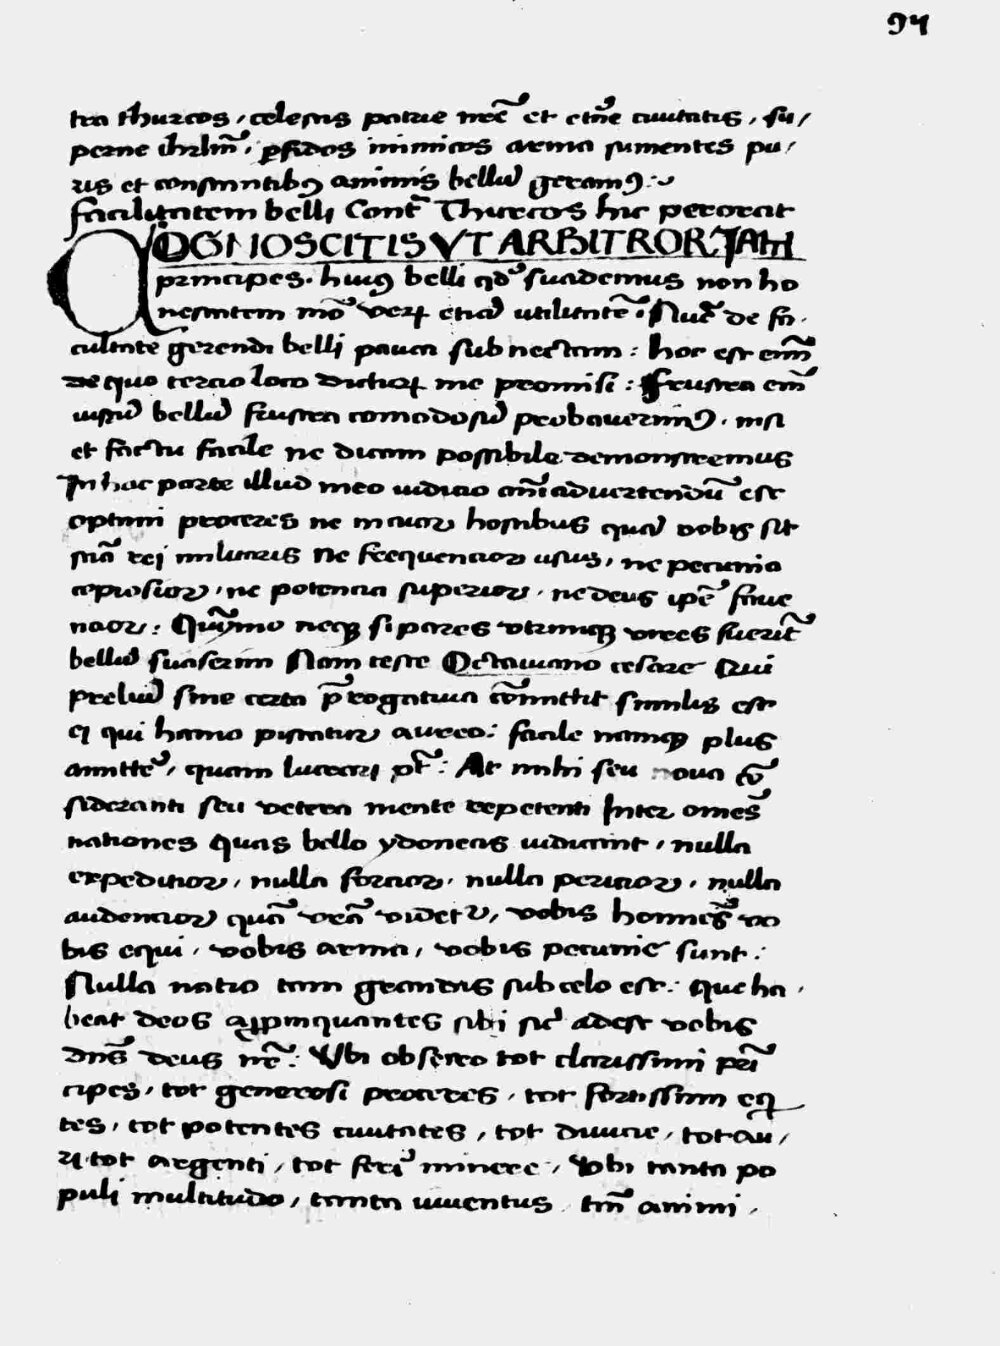 94
tra thurcos, celestis patrie nr̄e et etn̄e ciuitatis, su/
perne ihrl̄m, ꝑfidos inimicos arma sumentes pu/
ris et constantibꝰ animis bellū geramꝰ:~
facilitatem belli Contᷓ Thurcos hic perorat
COGNOSCITIS VT ARBITROR IAM
principes. huiꝰ belli qd̄ suademus non ho
nestatem mō verꝭ etiā utilitatē. Nūc de fa.
cultate gerendi belli pauca subnectam: hoc est eni̅m
de quo tercio loco dicturꝭ me promisi: Frustra eni̅
iustū bellū frustra comodosū probauerimꝰ. nisi
et factu facile ne dicam possibile demonstremus
In hac parte illud meo iudicio aīaduertendū est
optimi proceres ne maior hostibus quā vobis sit
sciā rei militaris Ne frequencior usus, ne pecunia
copiosior, ne potencia superior, ne deus ip̄e faue
nacior: Quīymo neqꝫ si pares utrimqꝫ vires fuerīt
bellū suaserim Nam teste Octauiano cesare Qui
preliū sine certa p̄rogatiua cōmittit similis est
ei qui hamo piscatur aureo: facile namqꝫ plus
amittē, quam lucrari pt̄: At mihi seu noua cō
sideranti seu vetera mente repetenti Inter omēs
nationes quas bello ydoneas iudicant, nulla
expeditior, nulla forcior, nulla pericior, nulla
audencior quā vr̄a videtᷣ, vobis hominēs vo
bis equi, vobis arma, vobis pecunie sunt:
Nulla natio tam grandis sub celo est: que ha,
beat deos aꝓpinquantes sibi sic̄ adest vobis
dn̄s deus nr̄: Vbi obsecro tot clarissimi prī
cipes, tot generosi proceres, tot fortissimi eqꝫ
tes, tot potentes ciuitates, tot diuicie, tot au,
ri tot argenti, tot ferī minere, Vbi tanta po
puli multitudo, tanta iuuentus, tm̄ animi,